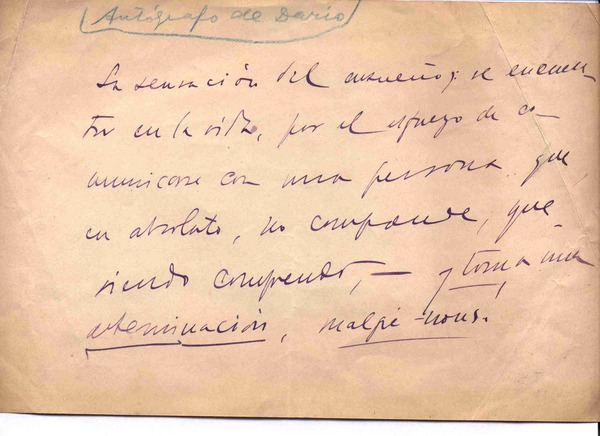 Autógrafo de Darío
La sensación del ensueño; se encuen-
tra en la vida, por el esfuerzo de co-
municarse con una persona que,
en absoluto, no comprende, que
siendo comprendo, — y toma una
determinación, malgré-nous!